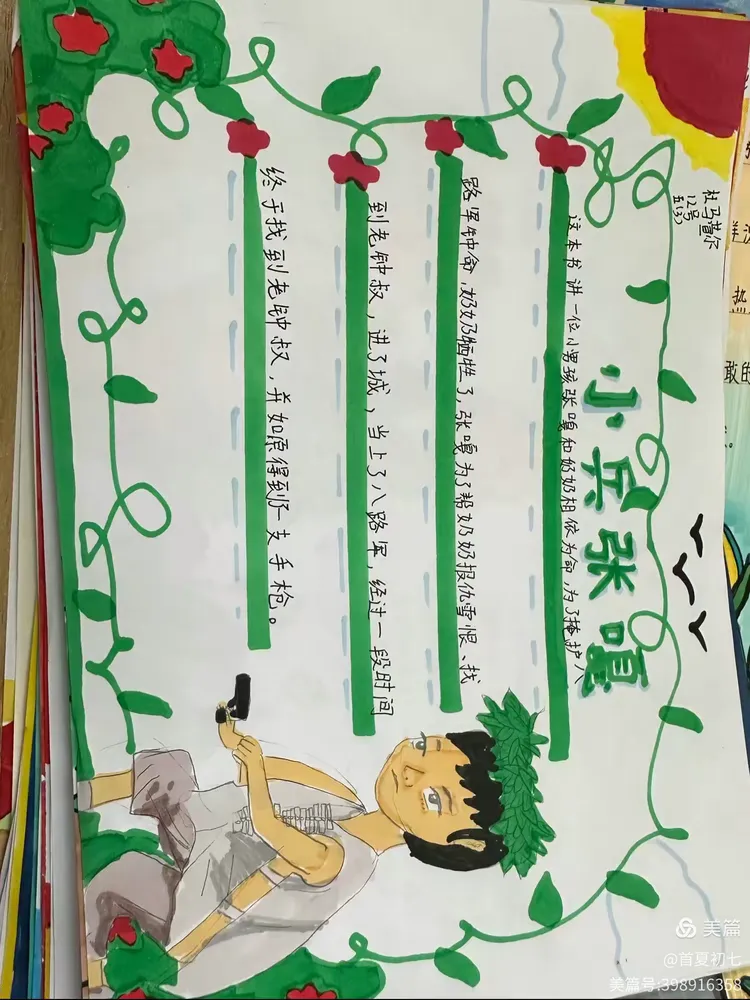 小兵张嘎
杜马普尔
12号
五(3)
这本书讲一位小男孩张嘎和奶奶相依为命,为了掩护八
路军钟命,奶奶牺牲了,张嘎为了帮奶奶报仇雪恨、找
到老钟叔,进了城,当上了八路军,经过一段时间
终于找到老钟叔,并如原得到了一支手枪。
热
敢的
美篇
@首夏初七
美篇号:398916358